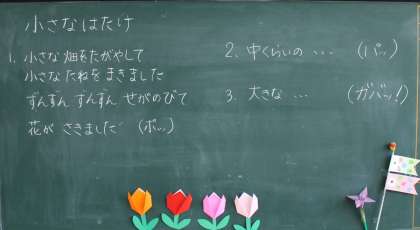 小さなはたけ
1. 小さな畑をたがやして
小さなたねをまきました
ずんずん ずんずん せがのびて
花が さきました (ポッ)
2. 中くらいの ... (パッ)
3. 大きな ... (ガバッ!)